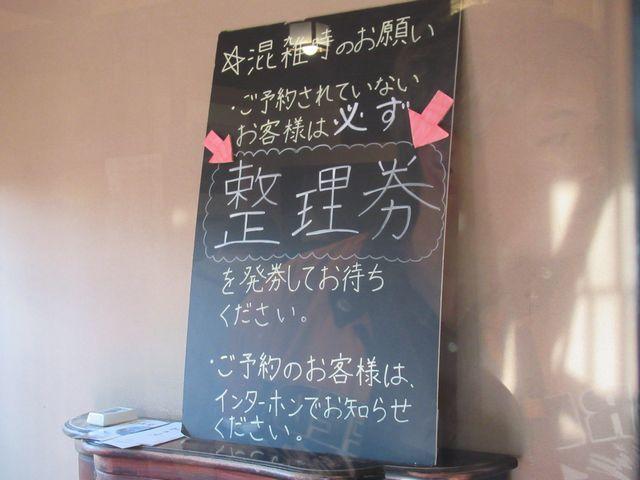 ☆混雑時のお願い
・ご予約されていない
お客様は必ず
整理券
を発券してお待ち
ください。
・ご予約のお客様は、
インターホンでお知らせ
ください。